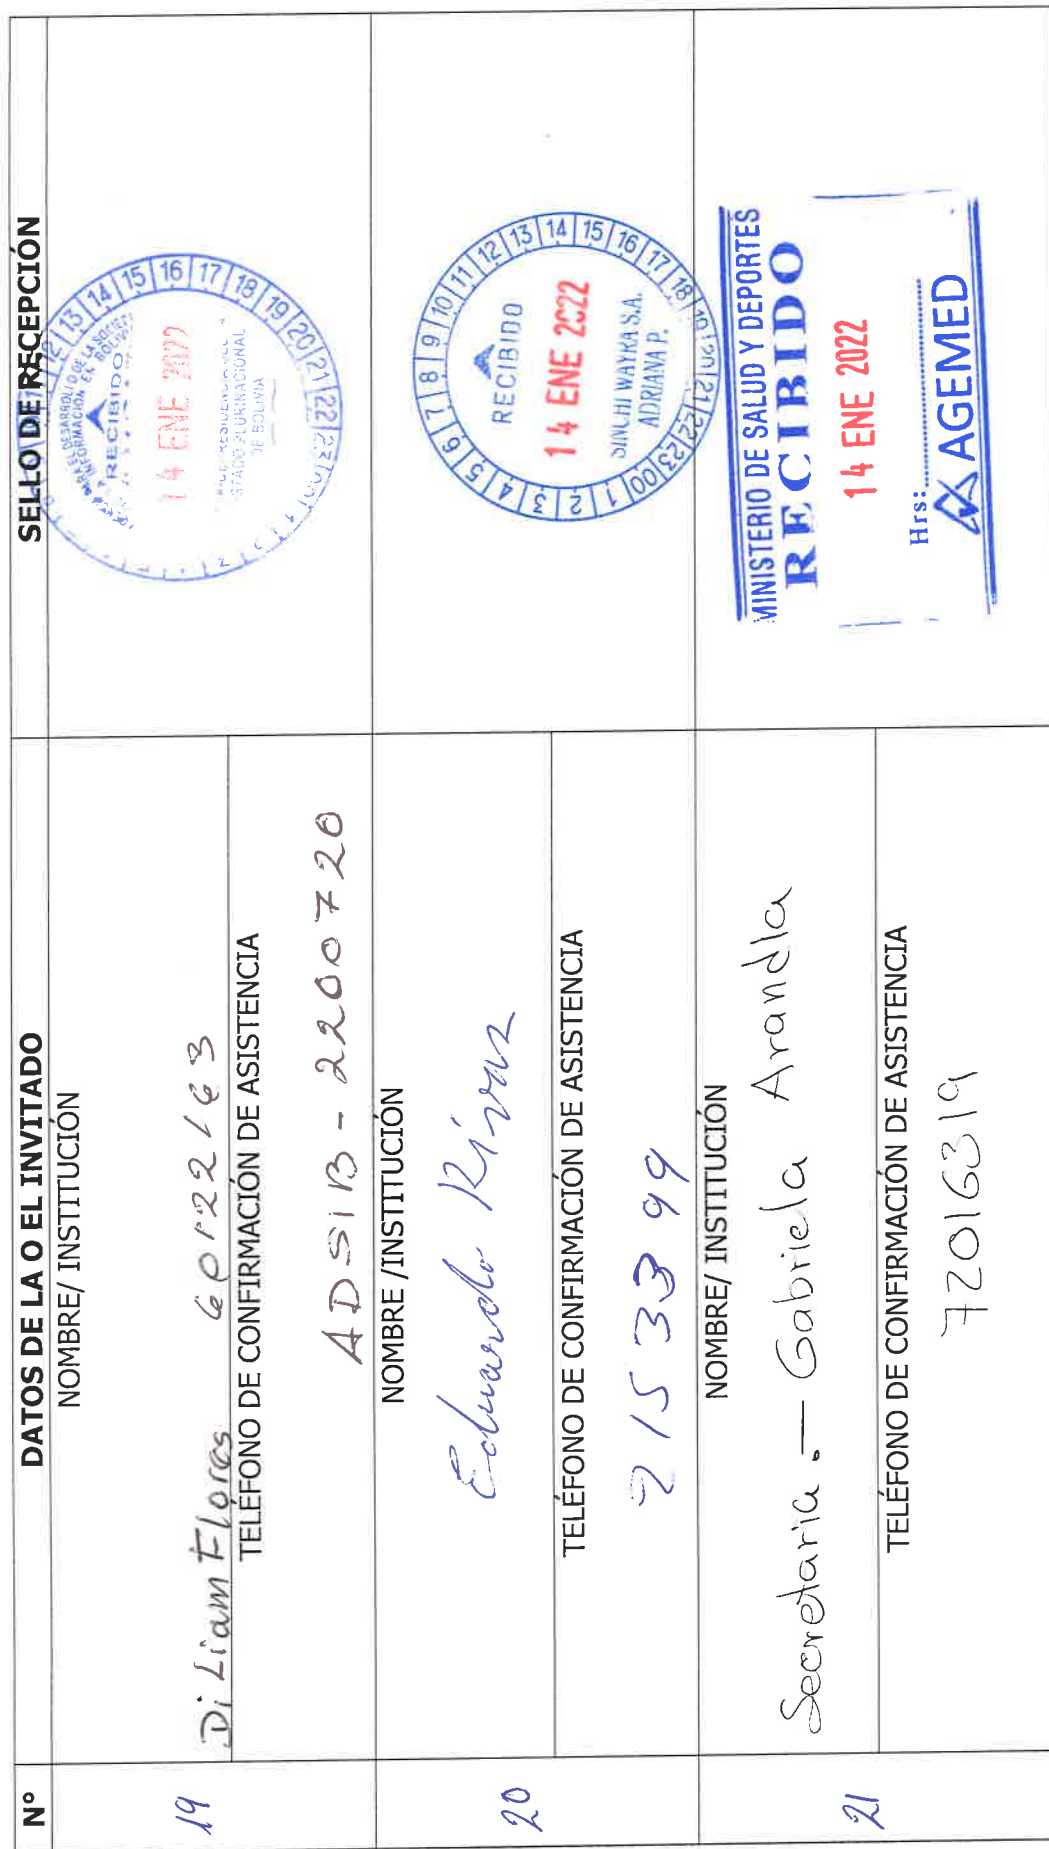 N° DATOS DE LA O EL INVITADO SELLO DE RECEPCIÓN
19
NOMBRE/ INSTITUCIÓN
Di Liam Flores
TELÉFONO DE CONFIRMACIÓN DE ASISTENCIA
ADSIB - 2200720
DESARROLLO DE LA
INFORMACIÓN EN BOLIVIA
RECIBIDO
14 ENE 2022
ESTADO PLURINACIONAL
DE BOLIVIA
12 13 14 15 16 17 18 19 20 21 22 23
20
NOMBRE /INSTITUCIÓN
Eduardo Rivas
TELÉFONO DE CONFIRMACIÓN DE ASISTENCIA
2153399
1 2 3 4 5 6 7 8 9 10 11 12 13 14 15 16 17 18 19 20 21 22 23 00
RECIBIDO
14 ENE 2022
SINCHI WAYRA S.A.
ADRIANA P.
21
NOMBRE/ INSTITUCIÓN
Secretaria.— Gabriela Arandia
TELÉFONO DE CONFIRMACIÓN DE ASISTENCIA
72016319
MINISTERIO DE SALUD Y DEPORTES
RECIBIDO
14 ENE 2022
Hrs:....................
AGEMED